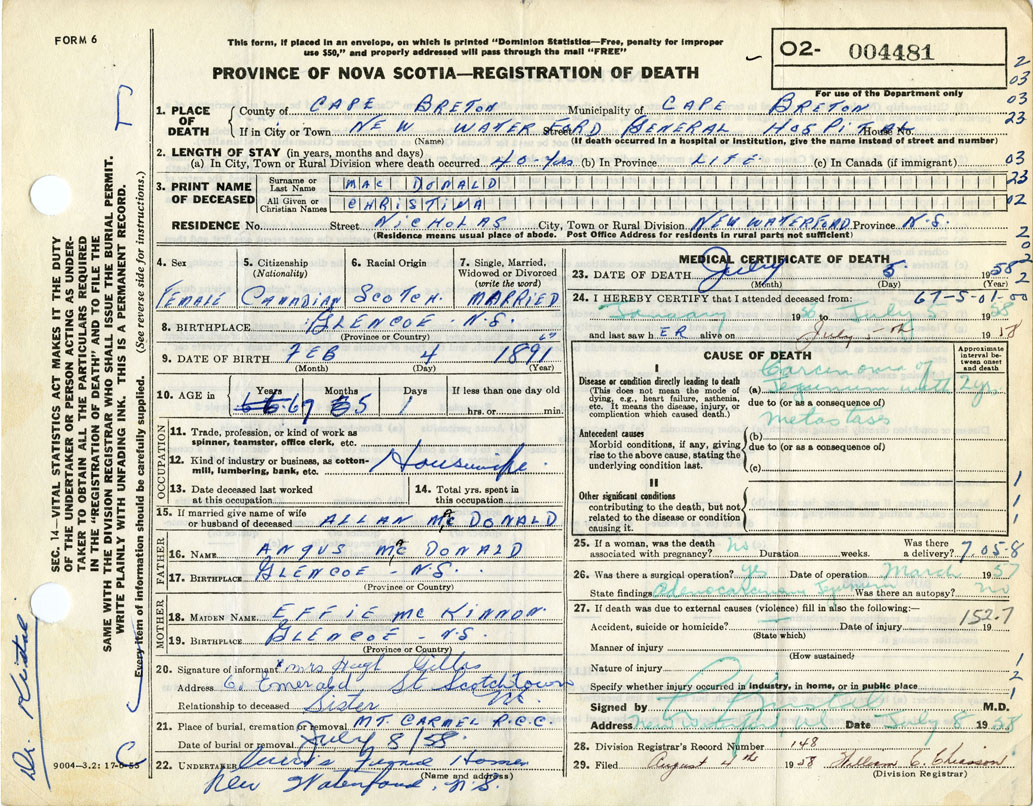 FORM 6
This form, if placed in an envelope, on which is printed "Dominion Statistics—Free, penalty for improper
use $50," and properly addressed will pass through the mail "FREE"
PROVINCE OF NOVA SCOTIA—REGISTRATION OF DEATH
O2- 004481
For use of the Department only
1. PLACE OF DEATH County of CAPE BRETON Municipality of CAPE BRETON
If in City or Town NEW WATERFORD GENERAL HOSPITAL Street House No.
(Name) (If death occurred in a hospital or institution, give the name instead of street and number)
2. LENGTH OF STAY (in years, months and days)
(a) In City, Town or Rural Division where death occurred 40-Yrs (b) In Province LIFE (c) In Canada (if immigrant)
3. PRINT NAME OF DECEASED Surname or Last Name MAC DONALD
All Given or Christian Names CHRISTINA
RESIDENCE No. Street NICHOLAS City, Town or Rural Division NEW WATERFORD Province N.S.
(Residence means usual place of abode. Post Office Address for residents in rural parts not sufficient)
4. Sex 5. Citizenship (Nationality) 6. Racial Origin 7. Single, Married, Widowed or Divorced (write the word)
FEMALE CANADIAN SCOTCH. MARRIED
8. BIRTHPLACE GLENCOE - N.S.
(Province or Country)
9. DATE OF BIRTH FEB 4 1891
(Month) (Day) (Year)
10. AGE in Years Months Days If less than one day old
67 5 1 hrs. or min.
OCCUPATION
11. Trade, profession, or kind of work as
spinner, teamster, office clerk, etc.
12. Kind of industry or business, as cotton-
mill, lumbering, bank, etc. Housewife
13. Date deceased last worked at this occupation 14. Total yrs. spent in this occupation
15. If married give name of wife
or husband of deceased ALLAN MacDONALD
FATHER
16. NAME ANGUS MacDONALD
17. BIRTHPLACE GLENCOE - N.S.
(Province or Country)
MOTHER
18. MAIDEN NAME EFFIE McKINNON
19. BIRTHPLACE GLENCOE - N.S.
(Province or Country)
20. Signature of informant Mrs Hugh Gillis
Address 6. Emerald St Scotchtown
Relationship to deceased Sister
21. Place of burial, cremation or removal MT. CARMEL R.C.C.
Date of burial or removal July 8/58
22. UNDERTAKER Curtis Funeral Home
(Name and address)
New Waterford, N.S.
MEDICAL CERTIFICATE OF DEATH
23. DATE OF DEATH July 5 1958
(Month) (Day) (Year)
24. I HEREBY CERTIFY that I attended deceased from: 67-5-01-00
January 1958 to July 5 1958
and last saw hER alive on July 5th 1958
CAUSE OF DEATH Approximate interval between onset and death
I
Disease or condition directly leading to death
(This does not mean the mode of
dying, e.g., heart failure, asthenia,
etc. It means the disease, injury, or
complication which caused death.)
(a) Carcinoma of Jejunum with 2 yrs
due to (or as a consequence of)
Metastases
Antecedent causes
Morbid conditions, if any, giving
rise to the above cause, stating the
underlying condition last.
(b)
due to (or as a consequence of)
(c)
II
Other significant conditions
contributing to the death, but not
related to the disease or condition
causing it.
25. If a woman, was the death
associated with pregnancy? no Duration weeks. Was there a delivery? 7.05-8
26. Was there a surgical operation? yes Date of operation March 1957
State findings Adenocarcinoma Jejunum Was there an autopsy? no
27. If death was due to external causes (violence) fill in also the following:—
Accident, suicide or homicide? Date of injury 19 152.7
(State which)
Manner of injury
(How sustained)
Nature of injury
Specify whether injury occurred in industry, in home, or in public place
Signed by M.D.
Address New Waterford Date July 8 1958
28. Division Registrar's Record Number 148
29. Filed August 4th 1958 William C. Chiasson
(Division Registrar)
SEC. 14—VITAL STATISTICS ACT MAKES IT THE DUTY
OF THE UNDERTAKER OR PERSON ACTING AS UNDER-
TAKER TO OBTAIN ALL THE PARTICULARS REQUIRED
IN THE "REGISTRATION OF DEATH" AND TO FILE THE
SAME WITH THE DIVISION REGISTRAR WHO SHALL ISSUE THE BURIAL PERMIT.
WRITE PLAINLY WITH UNFADING INK. THIS IS A PERMANENT RECORD.
Every item of information should be carefully supplied. (See reverse side for instructions.)
9004-3.2: 17-6-55
2
03
03
23
03
23
02
2
0
2
2
1
1
1
1
2
1